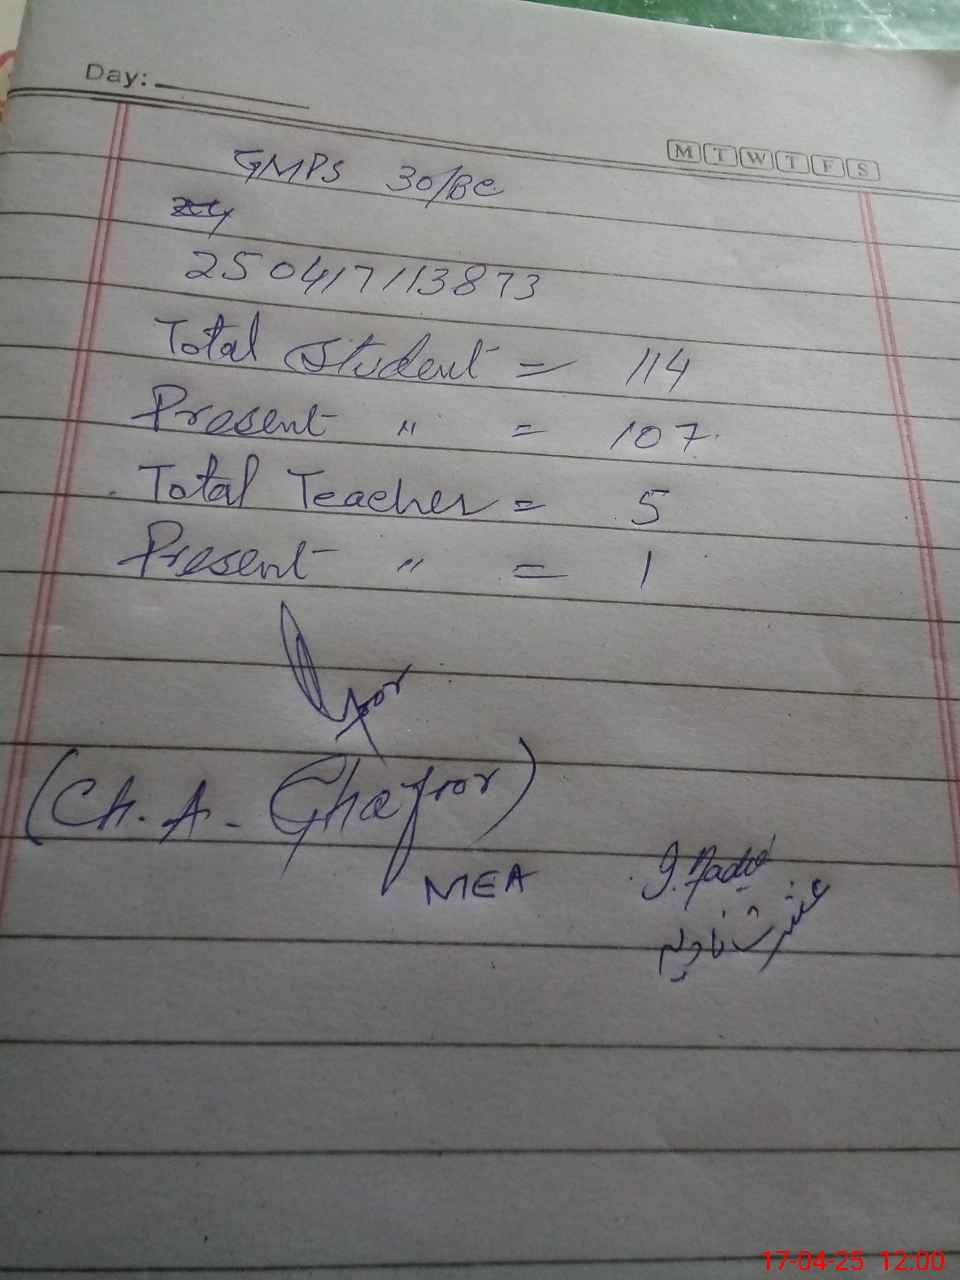 Day:
M T W T F S
GMPS 30/BC
250417113873
Total Student = 114
Present " = 107
Total Teacher = 5
Present " = 1
(Ch. A. Ghafoor)
MEA
عشرت ناہید
17-04-25 12.00